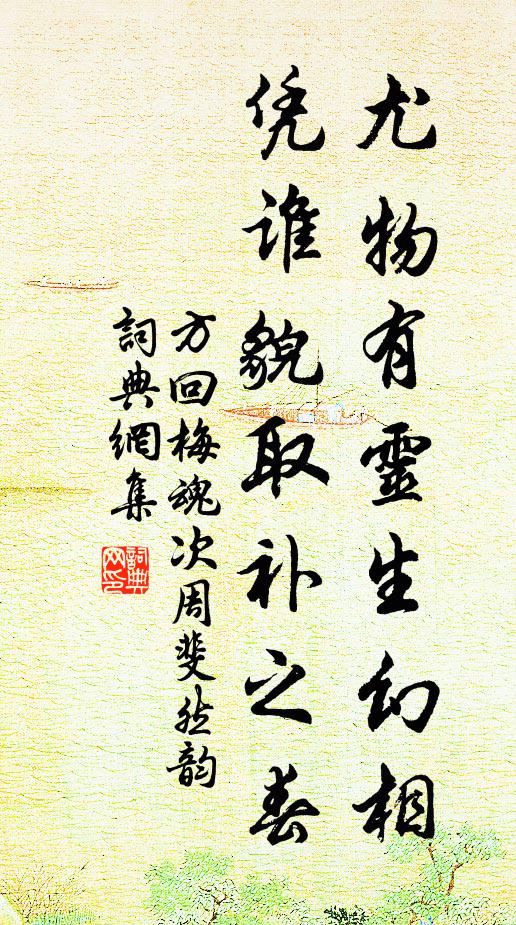 尤物有靈生幻相
凭谁貌取补之春
方回梅魂次周斐然韵
詞典網集
詞典网印